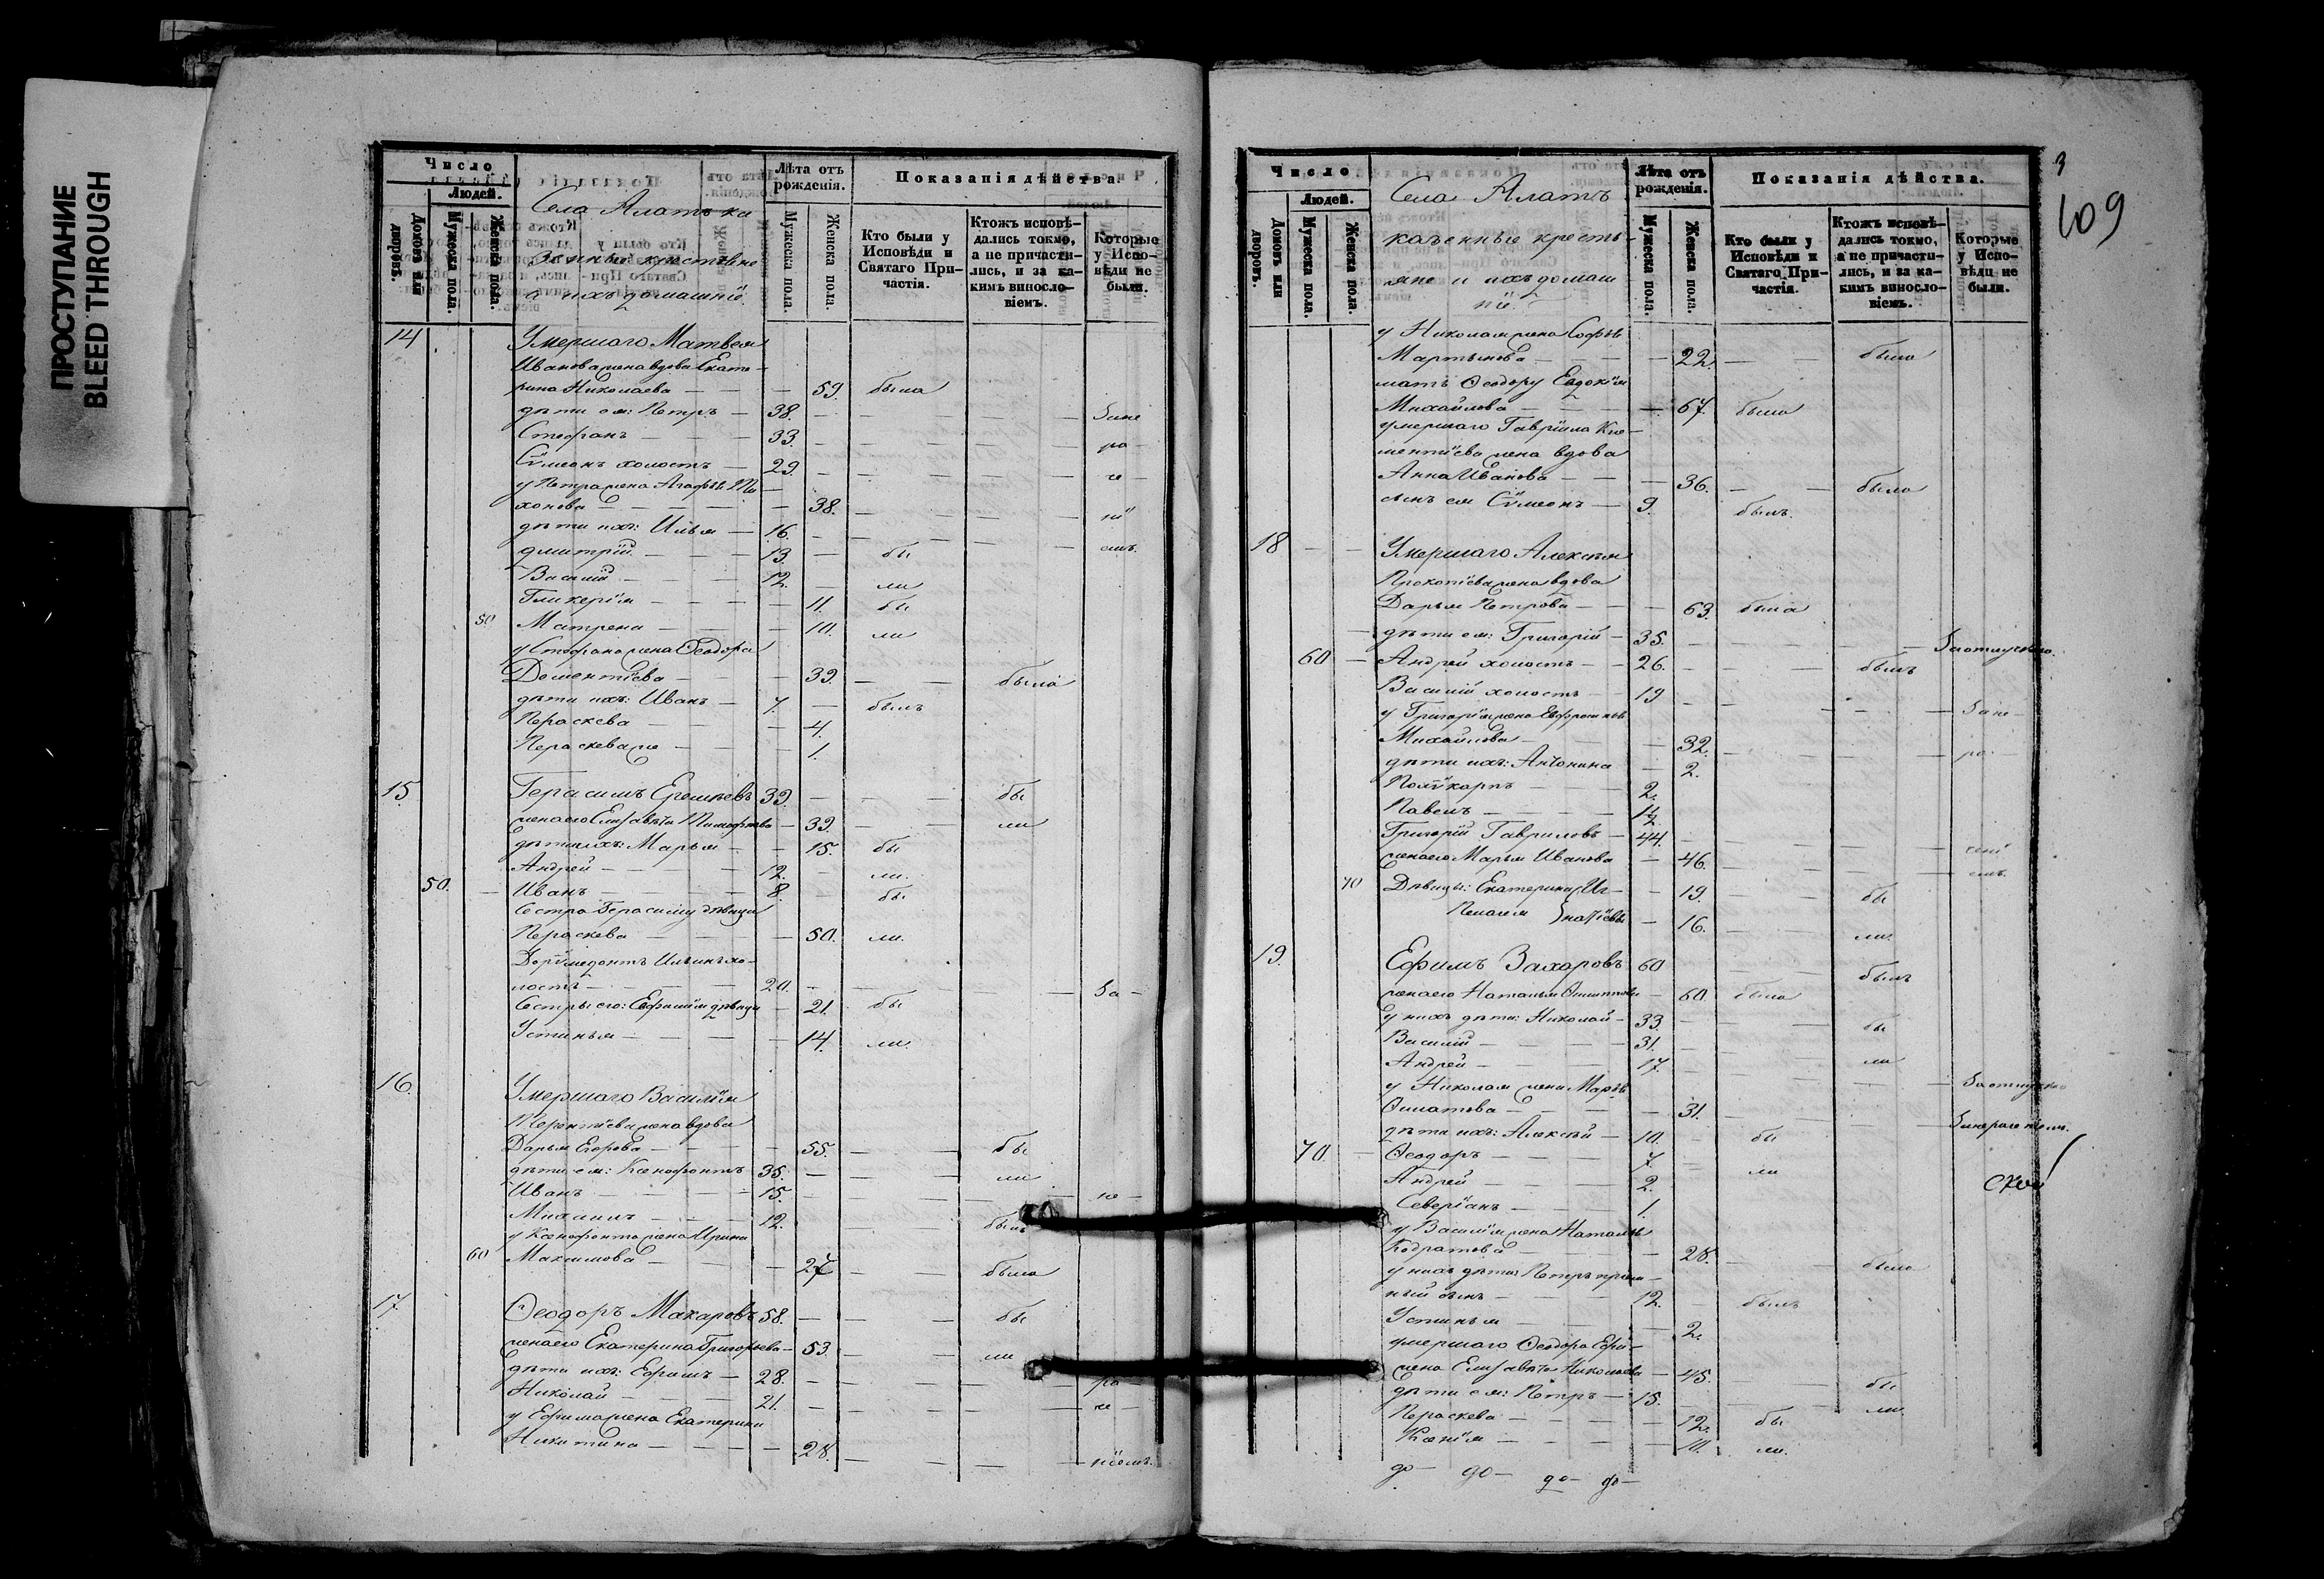 ПРОСТУПАНИЕ
BLEED THROUGH
Число
Людей.
Домовъ или дворовъ.
Мужеска пола.
Женска пола.
Села Алатъ ка
зенные крестьяне
и ихъ домашніе
Лѣта отъ рожденія.
Мужеска пола.
Женска пола.
Показанія дѣйства.
Кто были у Исповѣди и Святаго Причастія.
Ктожъ исповѣдались токмо, а не причастились, и за какимъ винословіемъ.
Которые у Исповѣди не были.
14 Умершаго Матвея
Иванова жена вдова Екате-
рина Николаева 59. была
дѣти ея: Петръ 38. Зане
Стефанъ 33. ра
Сѵмеонъ холостъ 29. че
у Петра жена Агафья Ти-
хонова 38. ні
дѣти ихъ: Илья 16. емъ.
Дмитрій 13. бы
Василій 12. ли
Гликерія 11. бы
50 Матрена 10. ли
у Стефана жена Ѳеодора
Доментіева 39. была
дѣти ихъ: Иванъ 7. былъ
Параскева 4.
Параскева же 1.
15. Герасимъ Еремѣевъ 39. бы
жена его Елисавета Тимофеева 39. ли
дѣти ихъ: Марья 15. бы
Андрей 12. ли.
50. Иванъ 8. бы
Сестра Герасиму дѣвица
Параскева 50. ли.
Доримедонтъ Ильинъ хо-
лостъ 20. За
Сестры его: Евфимія дѣвица 21. бы
Устинья 14. ли.
16. Умершаго Василія
Терентіева жена вдова
Дарья Егорова 55. бы
дѣти ея: Ксенофонтъ 35. ли
Иванъ 15. не
Михаилъ 12. былъ
у Ксенофонта жена Ирина
60 Максимова 27 была
17. Ѳеодоръ Макаровъ 58. бы
жена его Екатерина Григорьева 53. ли
дѣти ихъ: Ефимъ 28. ра
Николай 21. че
у Ефима жена Екатерина
Никитина 28. ніемъ.
3
109
Число
Людей.
Домовъ или дворовъ.
Мужеска пола.
Женска пола.
Села Алатъ
казенные кресть-
яне и ихъ домаш
ніе
Лѣта отъ рожденія.
Мужеска пола.
Женска пола.
Показанія дѣйства.
Кто были у Исповѣди и Святаго Причастія.
Ктожъ исповѣдались токмо, а не причастились, и за какимъ винословіемъ.
Которые у Исповѣди не были.
у Николая жена Софья
Мартынова 22. была
мать Ѳеодору Евдокія
Михайлова 67. была
умершаго Гавріила Кле-
ментіева жена вдова
Анна Иванова 36. была
сынъ ея Сѵмеонъ 9. былъ.
18 Умершаго Алексѣя
Прокопіева жена вдова
Дарья Петрова 63. была
дѣти ея: Григорій 35. За отлучкою.
60 Андрей холостъ 26. былъ
Василій холостъ 19 Зане
у Григорія жена
Михайлова 32. ра
дѣти ихъ: Антонина 2.
Поликарпъ 2.
Павелъ 1/2
Григорій Гавриловъ 44. чені
жена его Марья Иванова 46. емъ.
70 Дѣвицы: Екатерина Иг- 19. бы
Пелагея натіевы 16. ли.
19. Ефимъ Захаровъ 60 былъ
жена его Наталья 60. была
у нихъ дѣти: Николай 33. бы
Василій 31. ли
Андрей 17. За отлучкою
у Николая жена Марѳа
31. За нераченіемъ.
дѣти ихъ: Алексѣй 10. бы
70. Ѳеодоръ 7. ли
Андрей 2.
ской
Северіанъ 1.
у Василія жена Наталья
Кодратова 28. была
у нихъ дѣти: Петръ пріем-
ный сынъ 12. былъ
Устинья 2.
умершаго Ѳеодора Ефи-
жена Елисавета Николаева 45. бы
дѣти ея: Петръ 15. ли.
Параскева 12. бы
Ксенія 10. ли.
до- до- до- до-